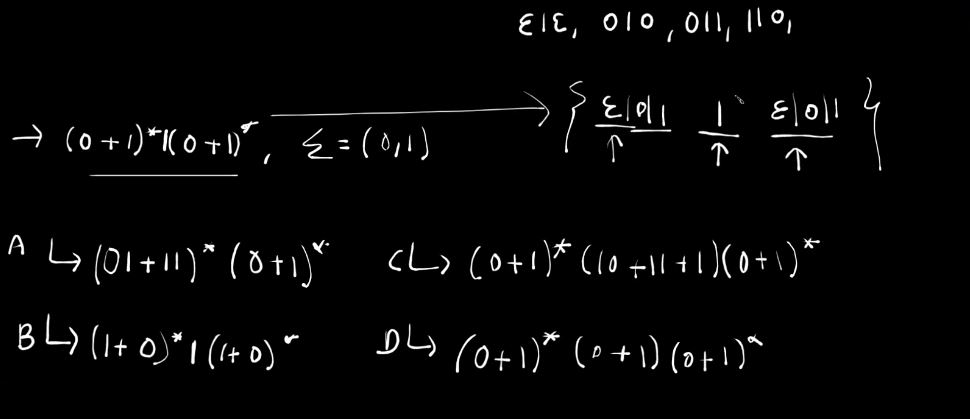 ε1ε, 010, 011, 110,
→ (0+1)*1(0+1)*, Σ = (0,1) → { ε|0|1 1 ε|0|1 }
A ↳ (01+11)* (0+1)* C ↳ (0+1)* (10+11+1)(0+1)*
B ↳ (1+0)* 1 (1+0)* D ↳ (0+1)* (0+1) (0+1)*